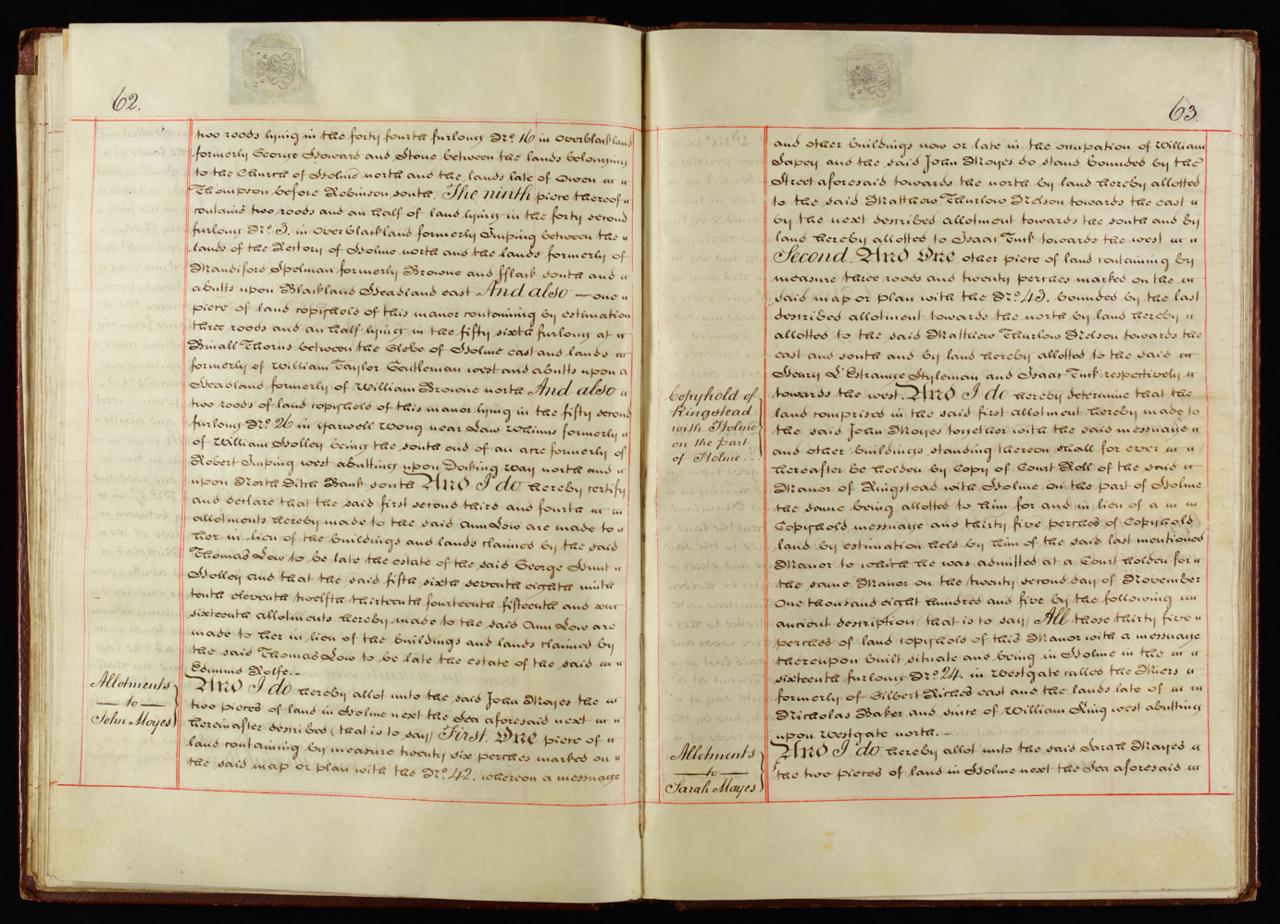 62.
two roods lying in the forty fourth furlong No. 16 in Overblackland
formerly George Howard and Stone between the lands belonging
to the Church of Holme north and the lands late of Owen
Thompson before Robinson south. The ninth piece thereof
contains two roods and an half of land lying in the forty second
furlong No. 3. in Overblackland formerly Imping between the
lands of the Rectory of Holme north and the lands formerly of
Mandiford Spelman formerly Browne and fflack south and
abutts upon Blackland Headland east And also — one
piece of land copyhold of this manor containing by estimation
three roods and an half lying in the fifty sixth furlong at
Small Thorns between the Glebe of Holme east and lands
formerly of William Taylor Gentleman west and abutts upon a
Headland formerly of William Browne north And also
two roods of land copyhold of this manor lying in the fifty second
furlong No. 26 in Yarwell Wong near Law Whinns formerly
of William Holley being the south end of an acre formerly of
Robert Imping west abutting upon Docking Way north and
upon North Ditch Bank south And I do hereby certify
and declare that the said first second third and fourth
allotments hereby made to the said Ann Low are made to
her in lieu of the buildings and lands claimed by the said
Thomas Low to be late the estate of the said George Hunt
Holley and that the said fifth sixth seventh eighth ninth
tenth eleventh twelfth thirteenth fourteenth fifteenth and
sixteenth allotments hereby made to the said Ann Low are
made to her in lieu of the buildings and lands claimed by
the said Thomas Low to be late the estate of the said
Edmund Rolfe.
Allotments
to
John Moyes
And I do hereby allot unto the said John Moyes the
two pieces of land in Holme next the Sea aforesaid next
hereinafter described (that is to say) First. One piece of
land containing by measure twenty six perches marked on
the said map or plan with the No. 42. whereon a messuage
63.
and other buildings now or late in the occupation of William
Sapey and the said John Moyes do stand bounded by the
Street aforesaid towards the north by land hereby allotted
to the said Matthew Thurlow Nelson towards the east
by the next described allotment towards the south and by
land hereby allotted to Isaac Tuck towards the west
Second. And One other piece of land containing by
measure three roods and twenty perches marked on the
said map or plan with the No. 43. bounded by the last
described allotment towards the north by land hereby
allotted to the said Matthew Thurlow Nelson towards the
east and south and by land hereby allotted to the said
Henry L'Estrange Styleman and Isaac Tuck respectively
towards the west. And I do hereby determine that the
Copyhold of
Ringstead
with Holme
on the part
of Holme...
land comprised in the said first allotment hereby made to
the said John Moyes together with the said messuage
and other buildings standing thereon shall for ever
hereafter be holden by Copy of Court Roll of the said
Manor of Ringstead with Holme on the part of Holme
the same being allotted to him for and in lieu of a
Copyhold messuage and thirty five perches of Copyhold
land by estimation held by him of the said last mentioned
Manor to which he was admitted at a Court holden for
the same Manor on the twenty second day of November
One thousand eight hundred and five by the following
ancient description (that is to say) All those thirty five
perches of land copyhold of this Manor with a messuage
thereupon built situate and being in Holme in the
sixteenth furlong No. 24. in Westgate called the Miers
formerly of Gilbert Riches east and the lands late of
Nicholas Baker and since of William King west abutting
upon Westgate north.
Allotments
to
Sarah Mayes
And I do hereby allot unto the said Sarah Mayes
the two pieces of land in Holme next the Sea aforesaid